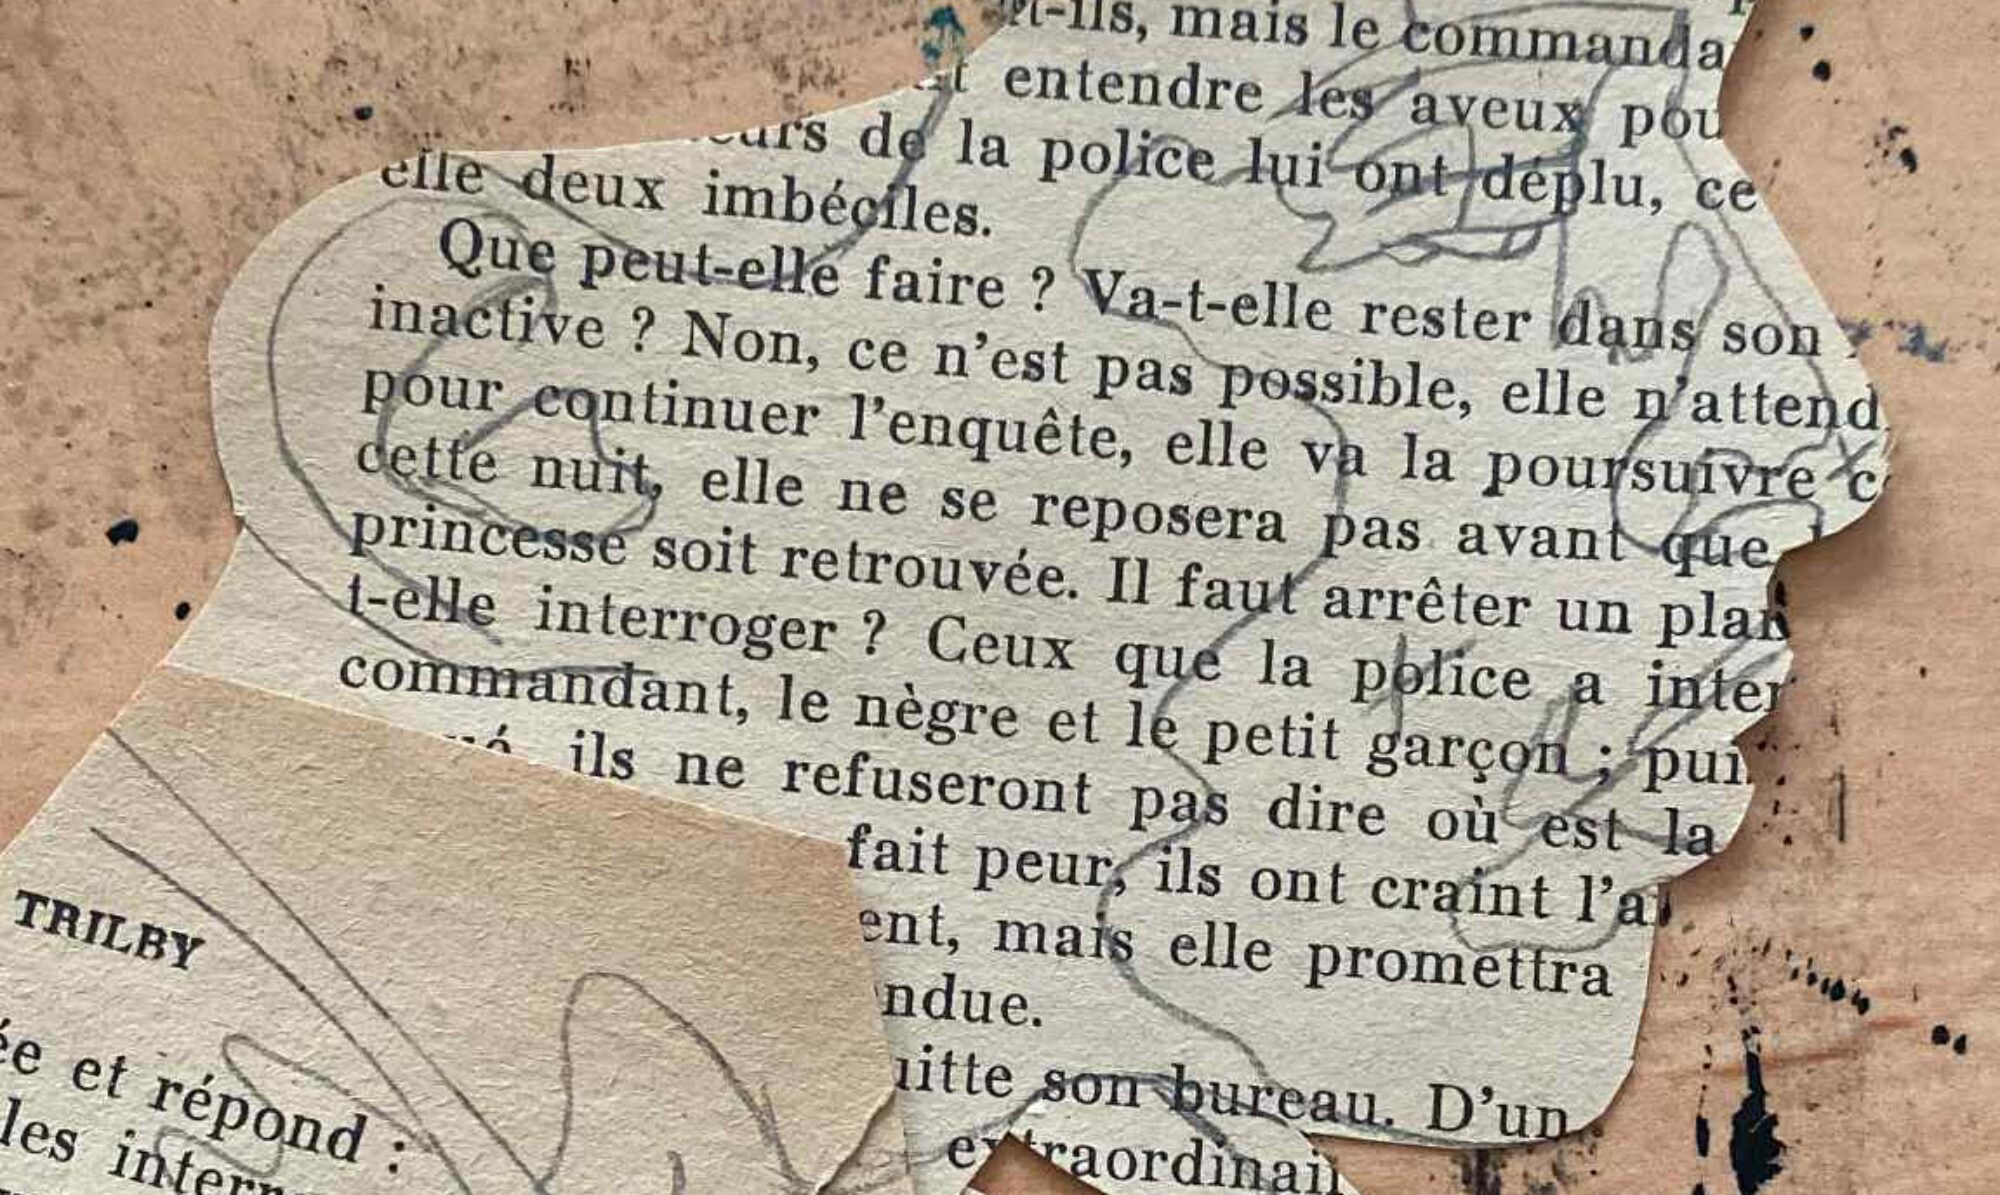 mais le commanda
entendre les aveux pou
de la police lui ont déplu, ce
elle deux imbéciles.
Que peut-elle faire ? Va-t-elle rester dans son
inactive ? Non, ce n'est pas possible, elle n'attend
pour continuer l'enquête, elle va la poursuivre c
cette nuit, elle ne se reposera pas avant que
princesse soit retrouvée. Il faut arrêter un plan
t-elle interroger ? Ceux que la police a inter
commandant, le nègre et le petit garçon ; pui
ils ne refuseront pas dire où est la
fait peur, ils ont craint l'a
ent, mais elle promettra
ndue.
uitte son bureau. D'un
extraordinair
TRILBY
ée et répond :
les interr